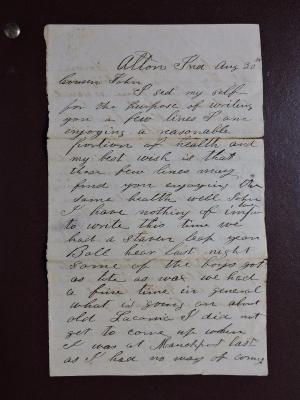 Alton Ind Aug 30th
Cousen John
I sed my self
for the purpose of writing
you a few lines I am
enjoying a reasonable
portion of health and
my best wish is that
these few lines may
find you enjoying the
same health well John
I have nothing of
to write this time we
had a leap year
Ball hear last night
some of the boys got
as tite as wax we had
a fine time in general
what is going on about
old Laconia I did not
get to come up when
I was at last
as I had no way of coming